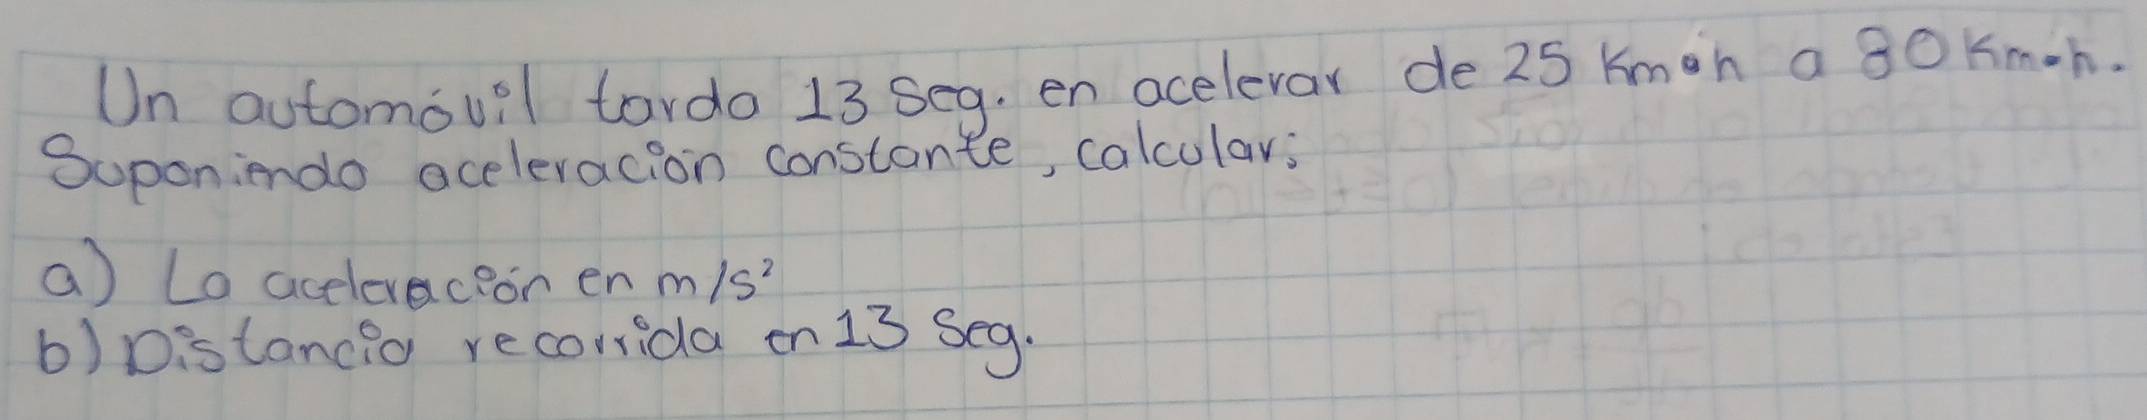 Un automóvil tarda 13 Seg. en acelerar de 25 Km•h a 80 Km•h.
Suponiendo aceleración constante, calcular:
a) La aceleración en m/s²
b) Distancia recorrida en 13 Seg.